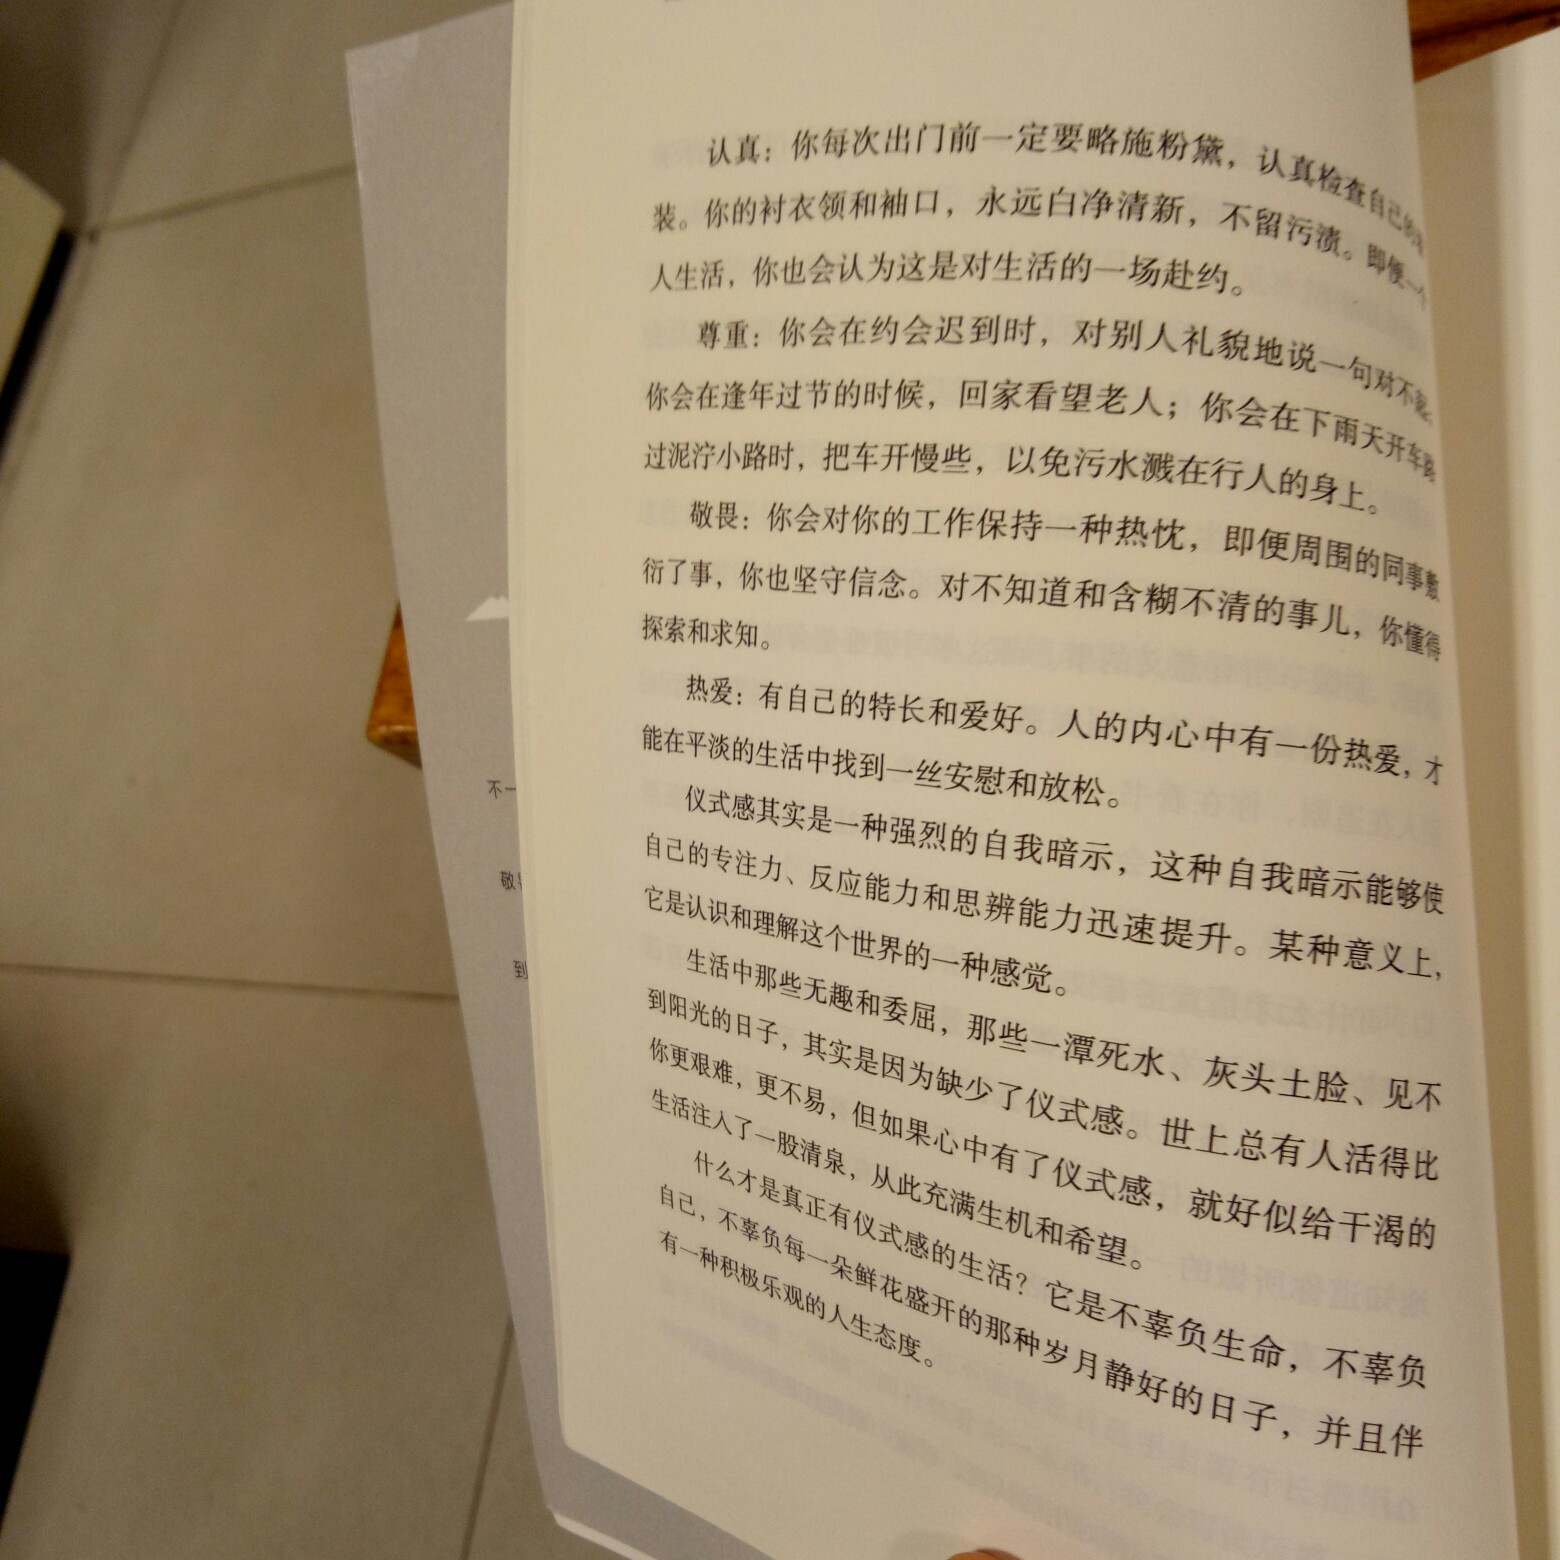 认真：你每次出门前一定要略施粉黛，认真检查自己的
装。你的衬衣领和袖口，永远白净清新，不留污渍。即便一个
人生活，你也会认为这是对生活的一场赴约。
尊重：你会在约会迟到时，对别人礼貌地说一句对不起；
你会在逢年过节的时候，回家看望老人；你会在下雨天开车路
过泥泞小路时，把车开慢些，以免污水溅在行人的身上。
敬畏：你会对你的工作保持一种热忱，即便周围的同事敷
衍了事，你也坚守信念。对不知道和含糊不清的事儿，你懂得
探索和求知。
热爱：有自己的特长和爱好。人的内心中有一份热爱，才
能在平淡的生活中找到一丝安慰和放松。
仪式感其实是一种强烈的自我暗示，这种自我暗示能够使
自己的专注力、反应能力和思辨能力迅速提升。某种意义上，
它是认识和理解这个世界的一种感觉。
生活中那些无趣和委屈，那些一潭死水、灰头土脸、见不
到阳光的日子，其实是因为缺少了仪式感。世上总有人活得比
你更艰难，更不易，但如果心中有了仪式感，就好似给干渴的
生活注入了一股清泉，从此充满生机和希望。
什么才是真正有仪式感的生活？它是不辜负生命，不辜负
自己，不辜负每一朵鲜花盛开的那种岁月静好的日子，并且伴
有一种积极乐观的人生态度。
不一
敬
到